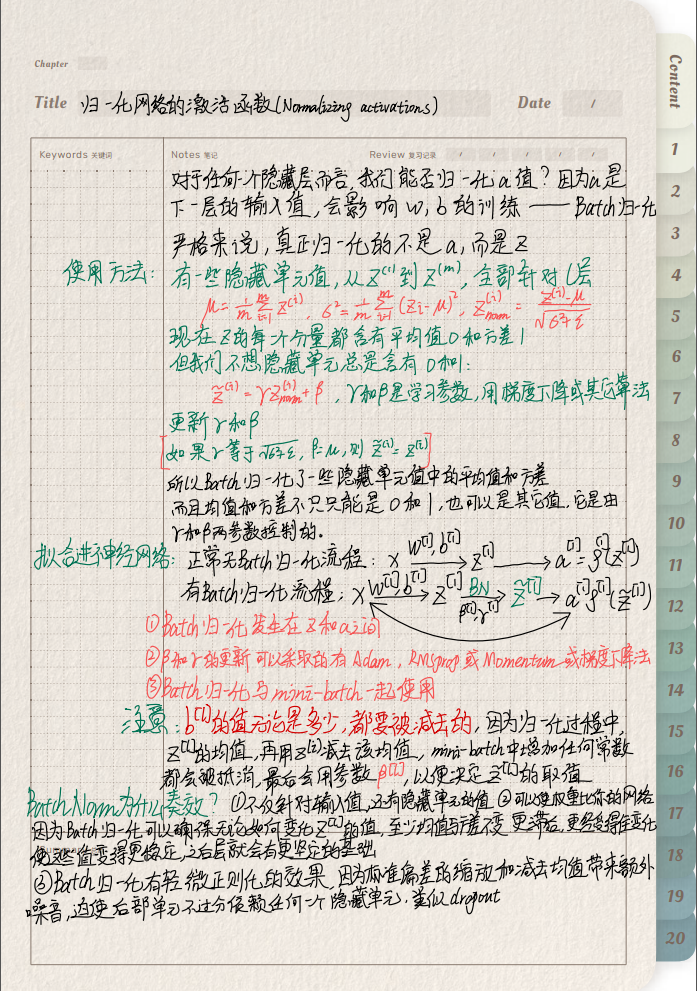 Chapter
Title 归一化网络的激活函数(Normalizing activations) Date /
Content
Keywords 关键词 Notes 笔记 Review 复习记录 / / / / /
对于任何一个隐藏层而言，我们能否归一化a值？因为a是
下一层的输入值，会影响w，b的训练 —— Batch归一化
严格来说，真正归一化的不是a，而是z
使用方法： 有一些隐藏单元值，从z⁽¹⁾到z⁽ᵐ⁾，全部针对l层
μ = 1/m Σ z⁽ⁱ⁾， σ² = 1/m Σ (zi - μ)²， z⁽ⁱ⁾norm = (z⁽ⁱ⁾ - μ)/√(σ²+ε)
现在z的每一个分量都含有平均值0和方差1
但我们不想隐藏单元总是含有0和1：
z̃⁽ⁱ⁾ = γz⁽ⁱ⁾norm + β ，γ和β是学习参数，用梯度下降或其它算法
更新γ和β
[如果γ等于√(σ²+ε)，β=μ，则 z̃⁽ⁱ⁾ = z⁽ⁱ⁾]
所以Batch归一化了一些隐藏单元值中的平均值和方差
而且均值和方差不只只能是0和1，也可以是其它值，它是由
γ和β两参数控制的。
拟合进神经网络： 正常无Batch归一化流程：x w[1],b[1] → z[1] → a[1] = g[1](z[1])
有Batch归一化流程：x w[1],b[1] → z[1] BN β[1],γ[1] → z̃[1] → a[1] g[1](z̃[1])
①Batch归一化发生在z和a之间
②β和γ的更新可以采取的有Adam，RMSprop或Momentum或梯度下降法
③Batch归一化与mini-batch一起使用
注意： b[l]的值无论是多少，都要被减去的，因为归一化过程中，
z[l]的均值，再用z⁽ⁱ⁾减去该均值，mini-batch中增加任何常数
都会被抵消，最后会用参数β[l]，以便决定z̃[l]的取值
Batch Norm为什么奏效？ ①不仅针对输入值，还有隐藏单元的值 ②可以使权重比你的网络
因为Batch归一化可以确保无论如何变化z[l]的值，至少均值与方差不变 更滞后，更经受得住变化
使这些值变得更稳定，之后层就会有更坚定的基础
③Batch归一化有轻微正则化的效果，因为标准偏差的缩放和减去均值带来额外
噪音，迫使后部单元不过分依赖任何一个隐藏单元，类似dropout
1
2
3
4
5
6
7
8
9
10
11
12
13
14
15
16
17
18
19
20